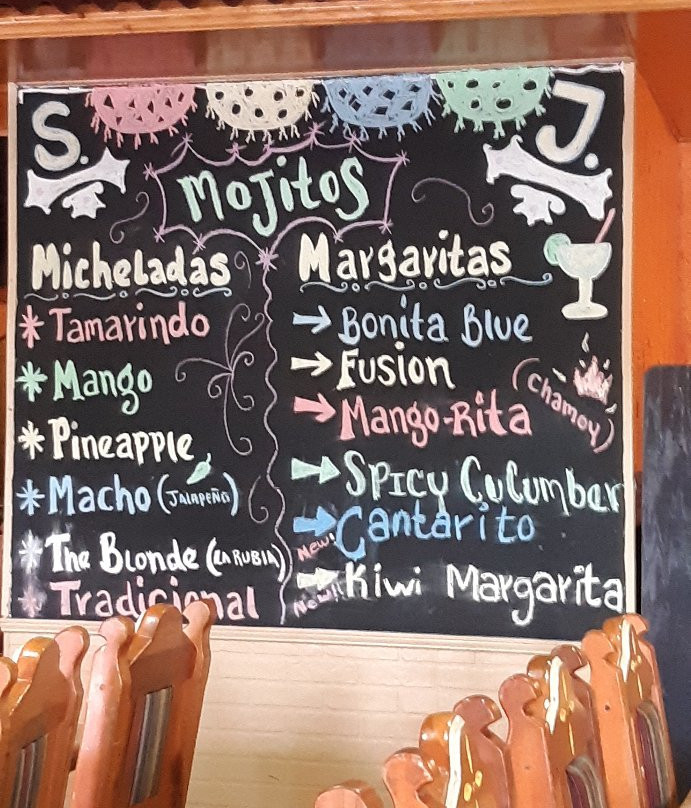 S. J.
Mojitos
Micheladas
Tamarindo
Mango
Pineapple
Macho (JALAPEÑO)
The Blonde (LA RUBIA)
Tradicional
Margaritas
Bonita Blue
Fusion
Mango-Rita (Chamoy)
Spicy CuCumber
Cantarito New!
Kiwi Margarita New!!